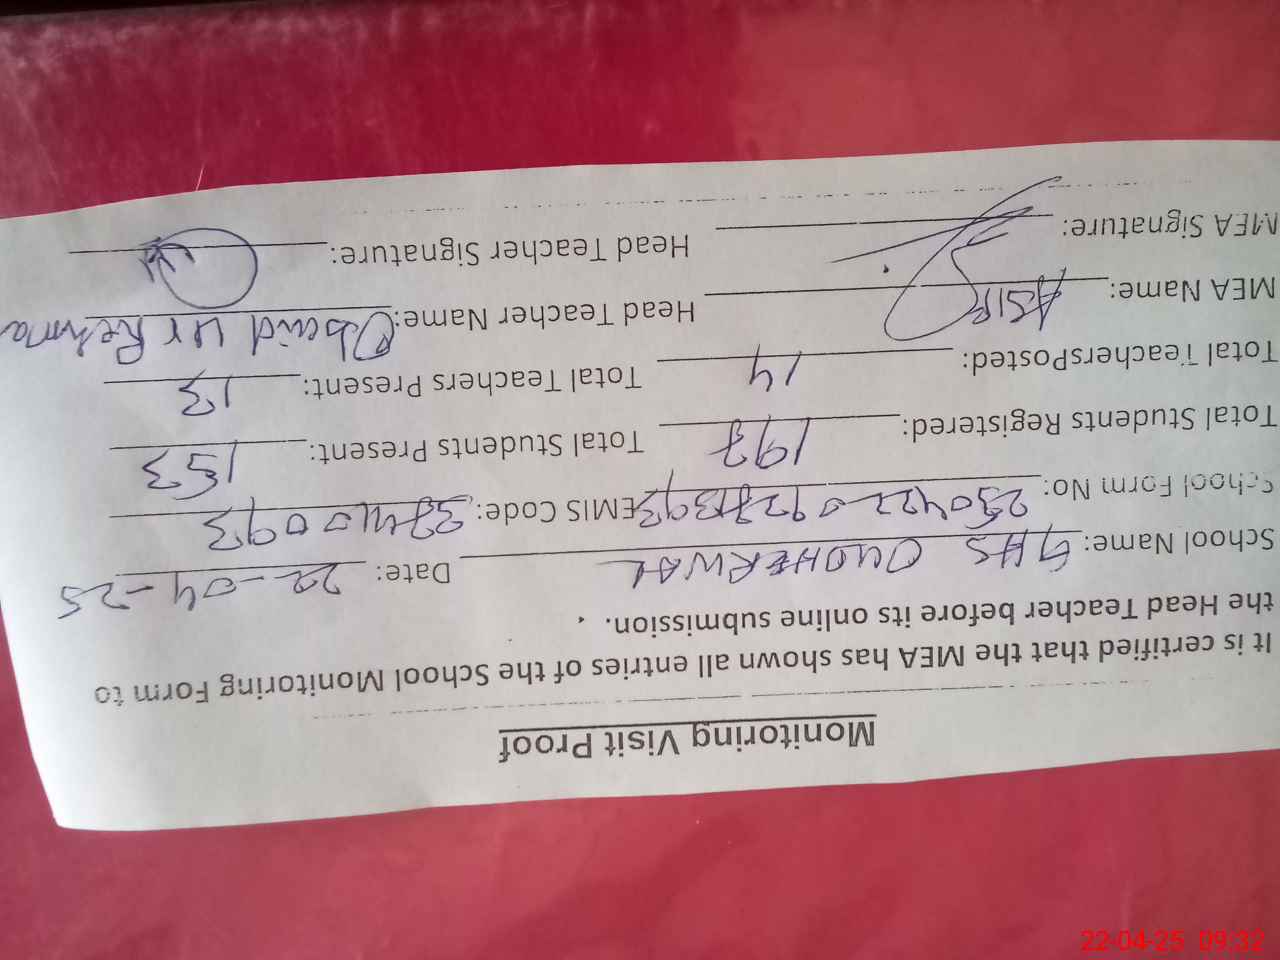 Monitoring Visit Proof
It is certified that the MEA has shown all entries of the School Monitoring Form to
the Head Teacher before its online submission.
School Name: GHS Date: 22-04-25
School Form No: EMIS Code:
Total Students Registered: 197 Total Students Present: 153
Total Teachers Posted: 14 Total Teachers Present: 13
MEA Name: ASIF Head Teacher Name: Obaid Ur Rehma
MEA Signature: Head Teacher Signature:
22-04-25 09:32